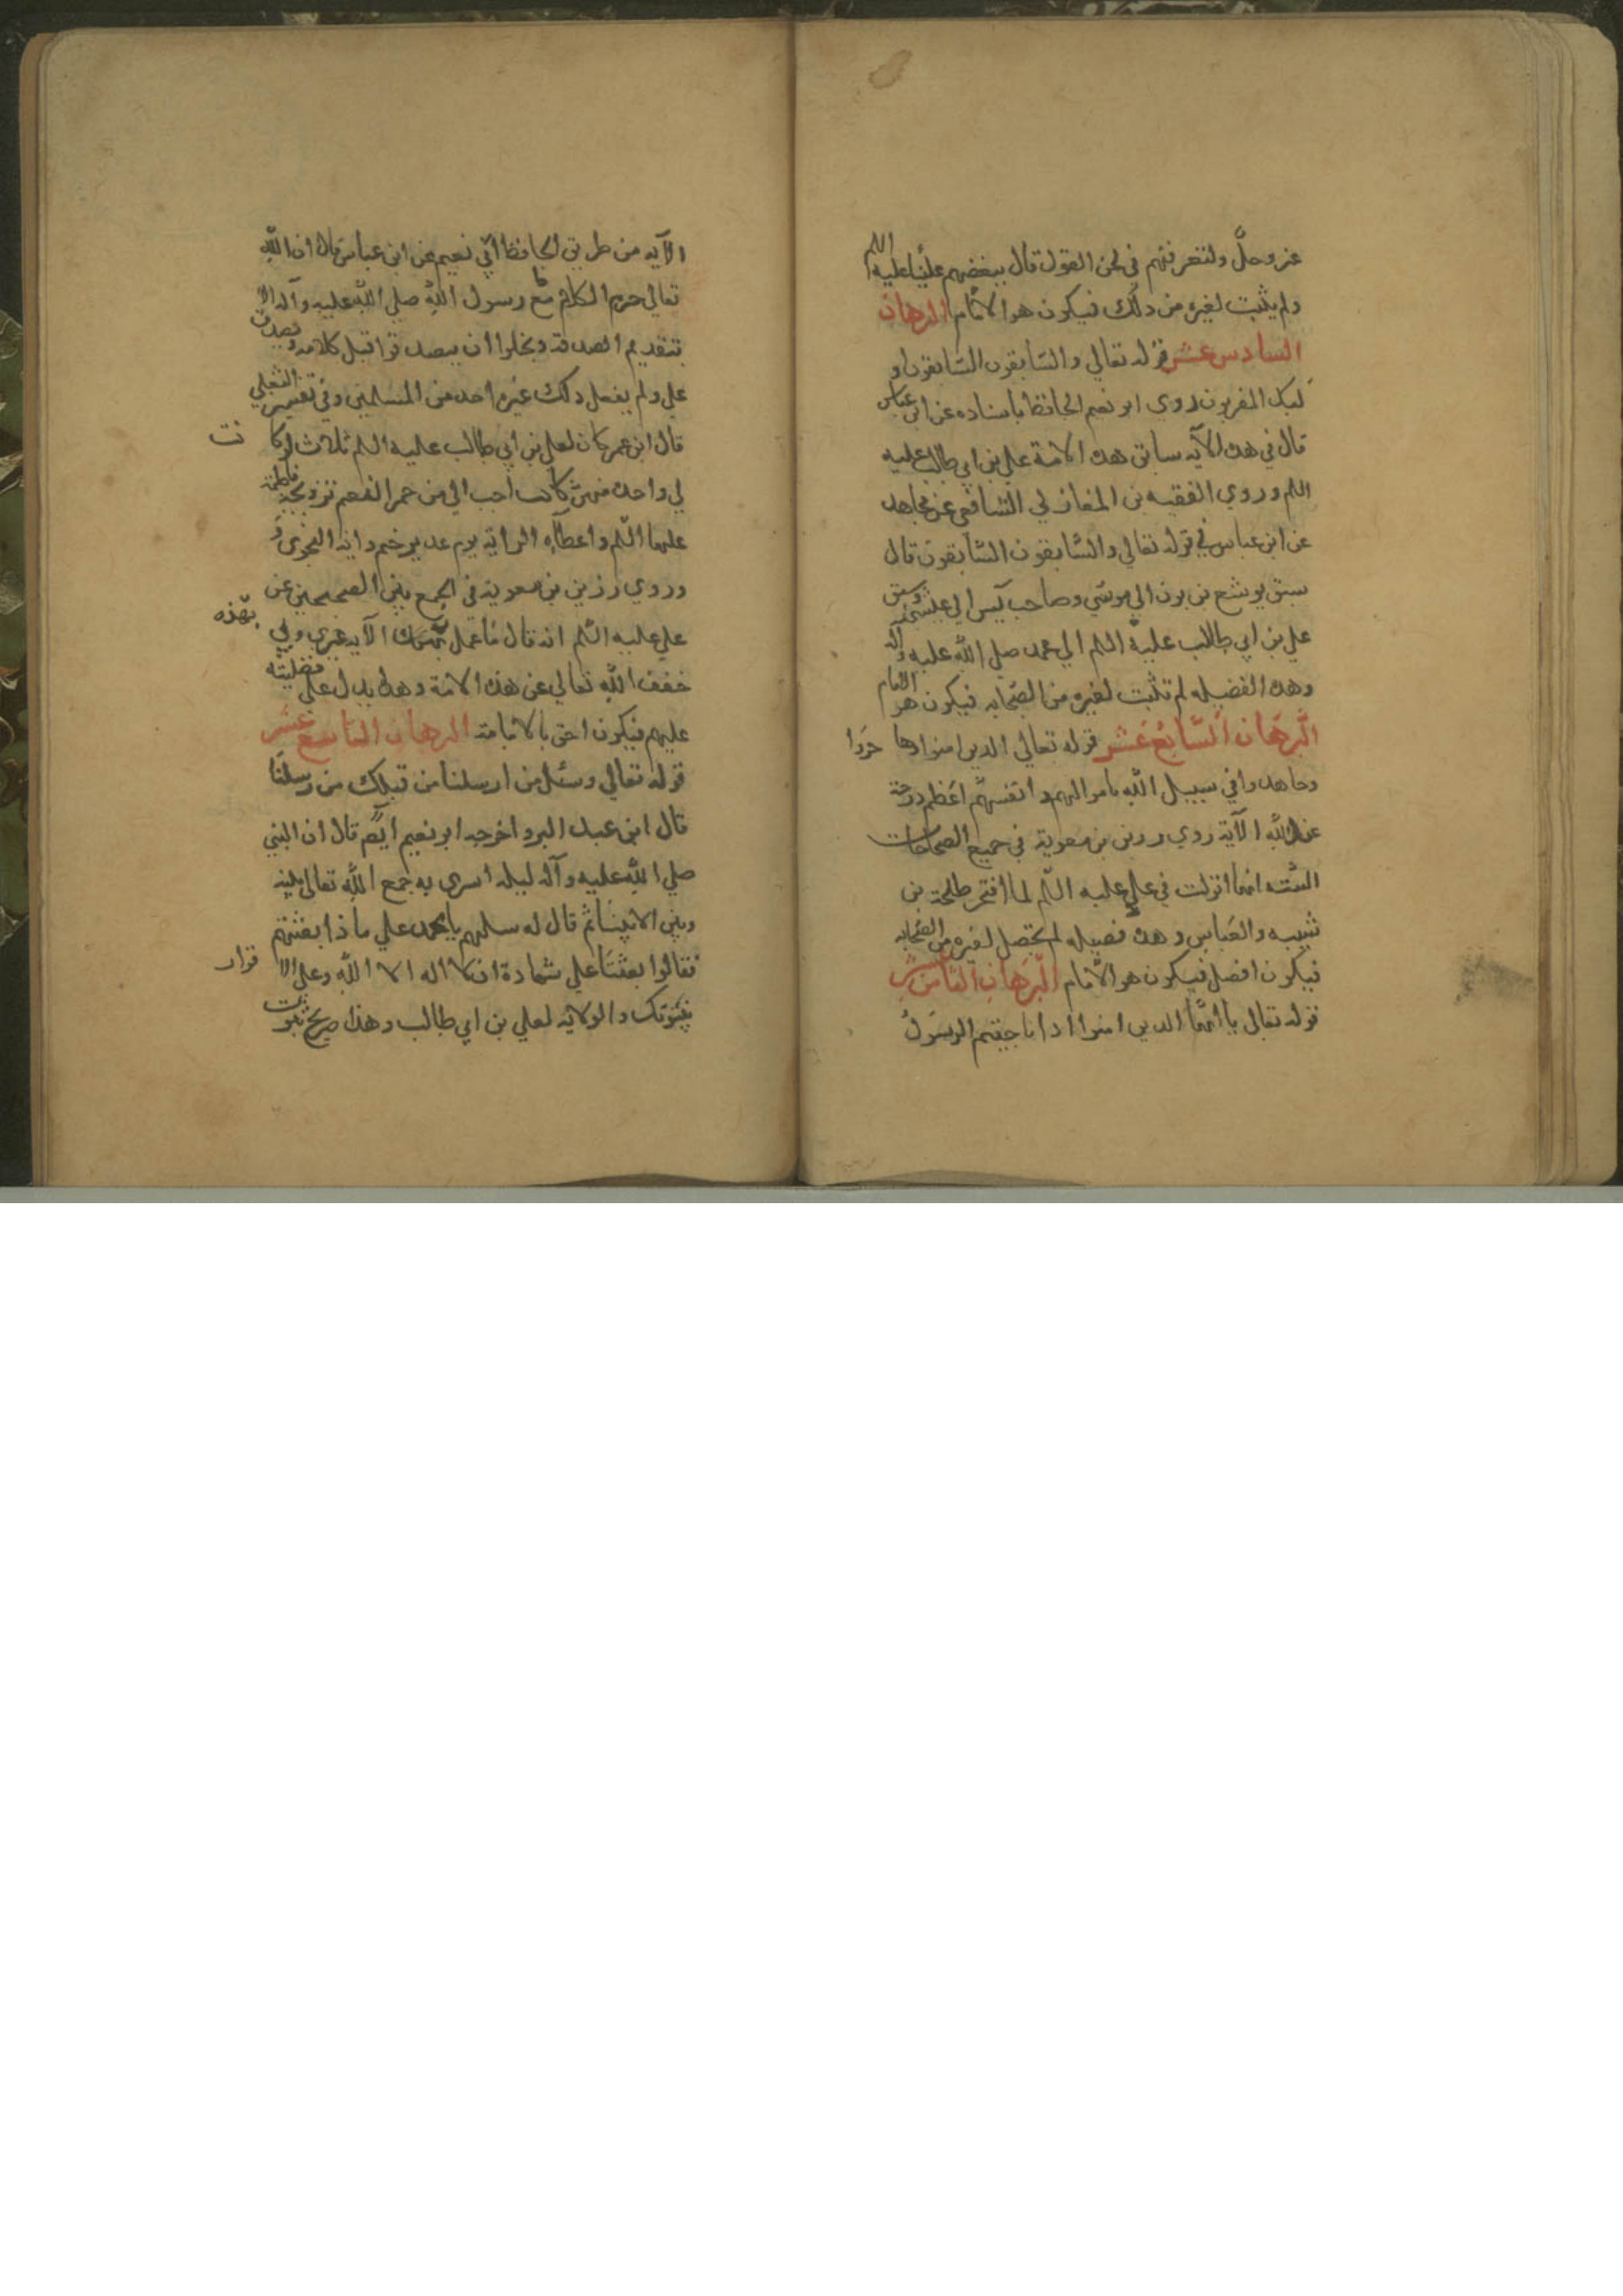 عز وجل ولتعرفنهم في لحن القول قال ببغضهم عليا عليه اللم
ولم يثبت لغيره من ذلك فيكون هو الامام البرهان
السادس عشر قوله تعالي والسابقون السابقون او
لىك المقربون روي ابو نعيم الحافظ باسناده عن ابن عباس
قال في هده الآيه سابق هده الامة علي بن ابي طالب عليه
اللم وروي الفقيه بن المغازلي الشافعي عن مجاهد
عن ابن عباس في قوله تعالي والسابقون السابقون قال
سبق يوشع بن نون الي موسي وصاحب يس الي عيسي وسبق
علي بن ابي طالب عليه اللم الي محمد صلي الله عليه وآله
وهده الفضيله لم تثبت لغيره من الصحابه فيكون هو الامام
البرهان السابع عشر قوله تعالي الدين امنوا وها جروا
وجاهدوا في سبيل الله باموالهم وانفسهم اعظم درجة
عند الله الآية روي رزين بن معوية في جميع الصحاحات
الستة انها انزلت في علي عليه اللم لما افتخر طلحة بن
شيبه والعباس وهده فضيله لم تحصل لغيره من الصحابه
فيكون افضل فيكون هو الامام البرهان الثامن عشر
قوله تعالي يا ايها الدين امنوا ادا ناجيتم الرسول
الآيه من طريق الحافظ ابي نعيم عن ابن عباس قال ان الله
تعالي حرم الكلام مع رسول الله صلي الله عليه وآله الا
بتقديم الصدقة وبخلوا ان يتصدقوا قبل كلامه وتصدق
علي ولم يفعل دلك غيره احد من المسلمين وفي تفسير الثعلبي
قال ابن عمر كان لعلي بن ابي طالب عليه اللم ثلاث لو كا نت
لي واحدة منهن كانت احب الي من حمر النعم تزويجه فاطمة
عليها اللم واعطآؤه الراية يوم غدير خم واية النجوي و
وروي رزين بن معوية في الجمع بين الصحيحين عن
علي عليه اللم انه قال ما عمل بهذه الآيه غيري وبي
خفف الله تعالي عن هذه الامة وهدا يدل علي فضليته
عليهم فيكون احق بالامامة البرهان التاسع عشر
قوله تعالي وسئل من ارسلنا من قبلك من رسلنا
قال ابن عبد البر واخرجه ابو نعيم ايضم قال ان النبي
صلي الله عليه وآله ليله اسري به جمع الله تعالي بينه
وبين الانبيا ثم قال له سلهم يا محمد علي ما ذا بعثتم
فقالوا بعثنا علي شهادة ان لا اله الا الله وعلي الا قرار
بنبوتك والولايه لعلي بن ابي طالب وهذا صريح بثبوت